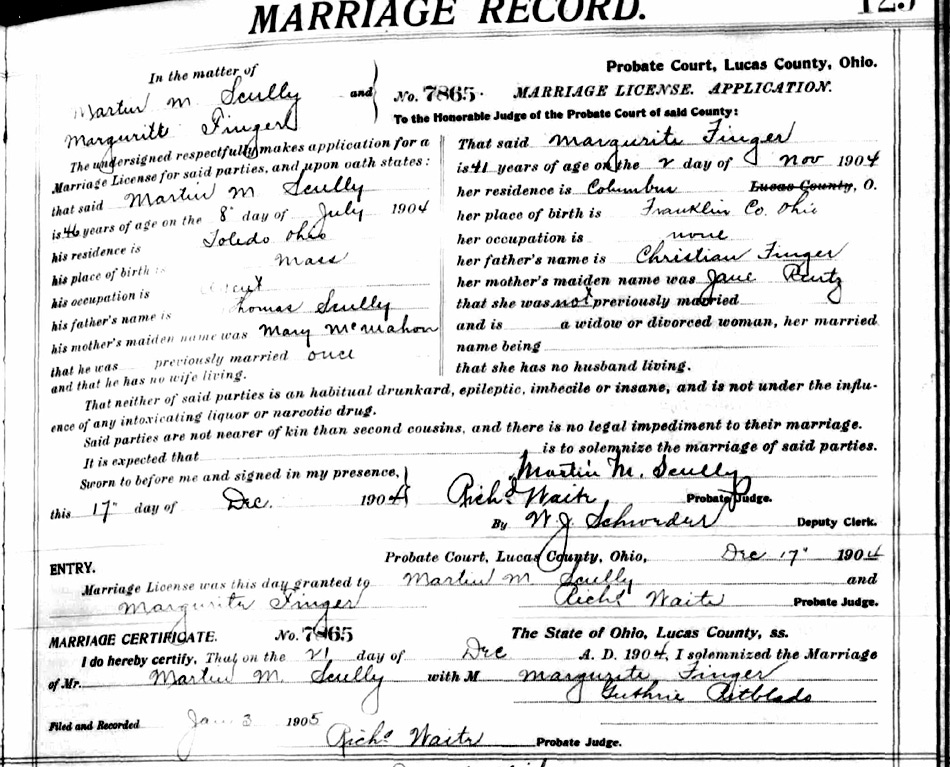 MARRIAGE RECORD. 125
In the matter of
Martin M. Scully and
Margurite Finger
The undersigned respectfully makes application for a
Marriage License for said parties, and upon oath states:
that said Martin M Scully
is 46 years of age on the 8" day of July 1904
his residence is Toledo Ohio
his place of birth is Mass
his occupation is
his father's name is Thomas Scully
his mother's maiden name was Mary McMahon
that he was previously married once
and that he has no wife living.
Probate Court, Lucas County, Ohio.
No. 7865. MARRIAGE LICENSE. APPLICATION.
To the Honorable Judge of the Probate Court of said County:
That said Margurite Finger
is 41 years of age on the 2 day of Nov 1904
her residence is Columbus Lucas County, O.
her place of birth is Franklin Co. Ohio
her occupation is none
her father's name is Christian Finger
her mother's maiden name was Jane Rentz
that she was not previously married
and is a widow or divorced woman, her married
name being
that she has no husband living.
That neither of said parties is an habitual drunkard, epileptic, imbecile or insane, and is not under the influ-
ence of any intoxicating liquor or narcotic drug.
Said parties are not nearer of kin than second cousins, and there is no legal impediment to their marriage.
It is expected that is to solemnize the marriage of said parties.
Sworn to before me and signed in my presence, Martin M. Scully
this 17" day of Dec. 1904 Richd Waite Probate Judge.
By W. J. Schroeder Deputy Clerk.
ENTRY. Probate Court, Lucas County, Ohio, Dec 17" 1904
Marriage License was this day granted to Martin M Scully and
Margurite Finger Richd Waite Probate Judge.
MARRIAGE CERTIFICATE. No. 7865 The State of Ohio, Lucas County, ss.
I do hereby certify, That on the 21 day of Dec A. D. 1904, I solemnized the Marriage
of Mr. Martin M. Scully with M Margurite Finger
Guthrie
Filed and Recorded Jan 3 1905
Richd Waite Probate Judge.